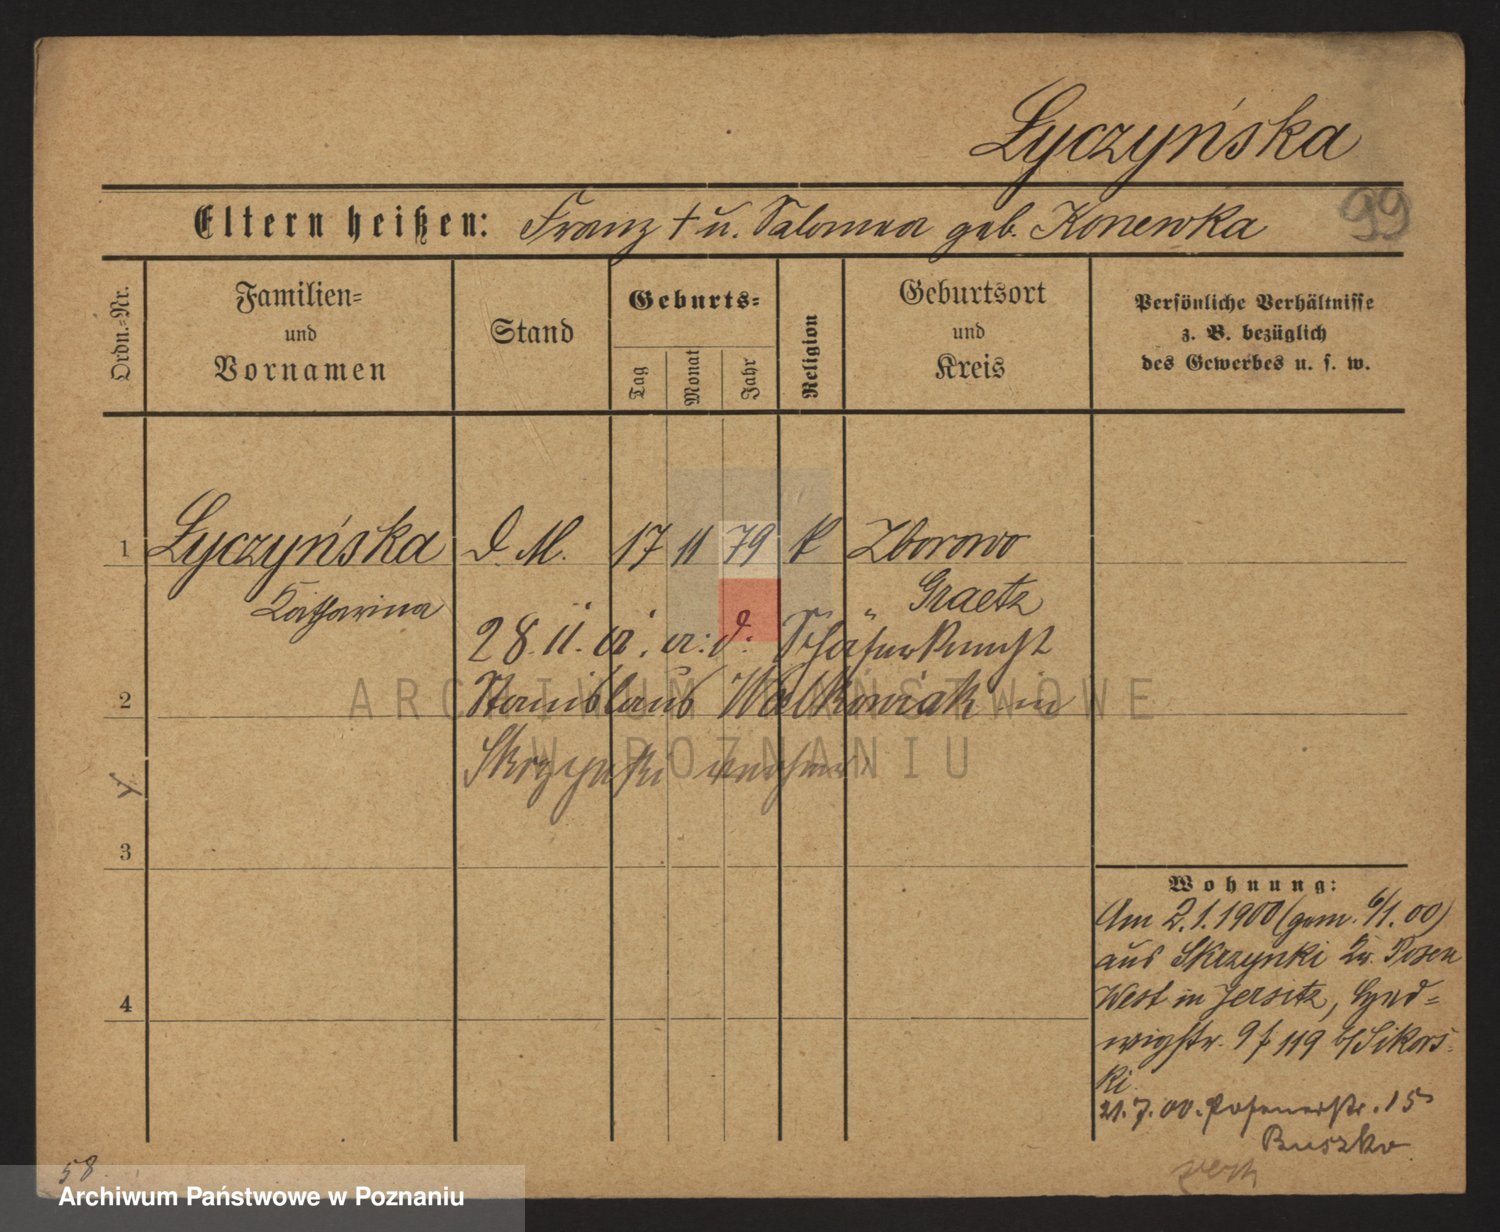 Lyczyńska
99
Eltern heißen: Franz † u. Salomea geb. Konewka
Ordn.-Nr.
Familien-
und
Vornamen
Stand
Geburts-
Tag
Monat
Jahr
Religion
Geburtsort
und
Kreis
Persönliche Verhältnisse
z. B. bezüglich
des Gewerbes u. s. w.
1 Lyczyńska d. M. 17 11 79 k Zborowo
Katharina Graetz
28. II. a. d. Schäferknecht
2 Stanislaus Walkowiak in
Skrzynki
3
4
Wohnung:
Am 2.1.1900 (gem. 6/1.00)
aus Skrzynki Kr. Posen
West in Jersitz, Hed=
wigstr. 9 f 119 b/Sikors-
ki
21.7.00. Posenerstr. 15
Buszko
58
ARCHIWUM PAŃSTWOWE
W POZNANIU
Archiwum Państwowe w Poznaniu